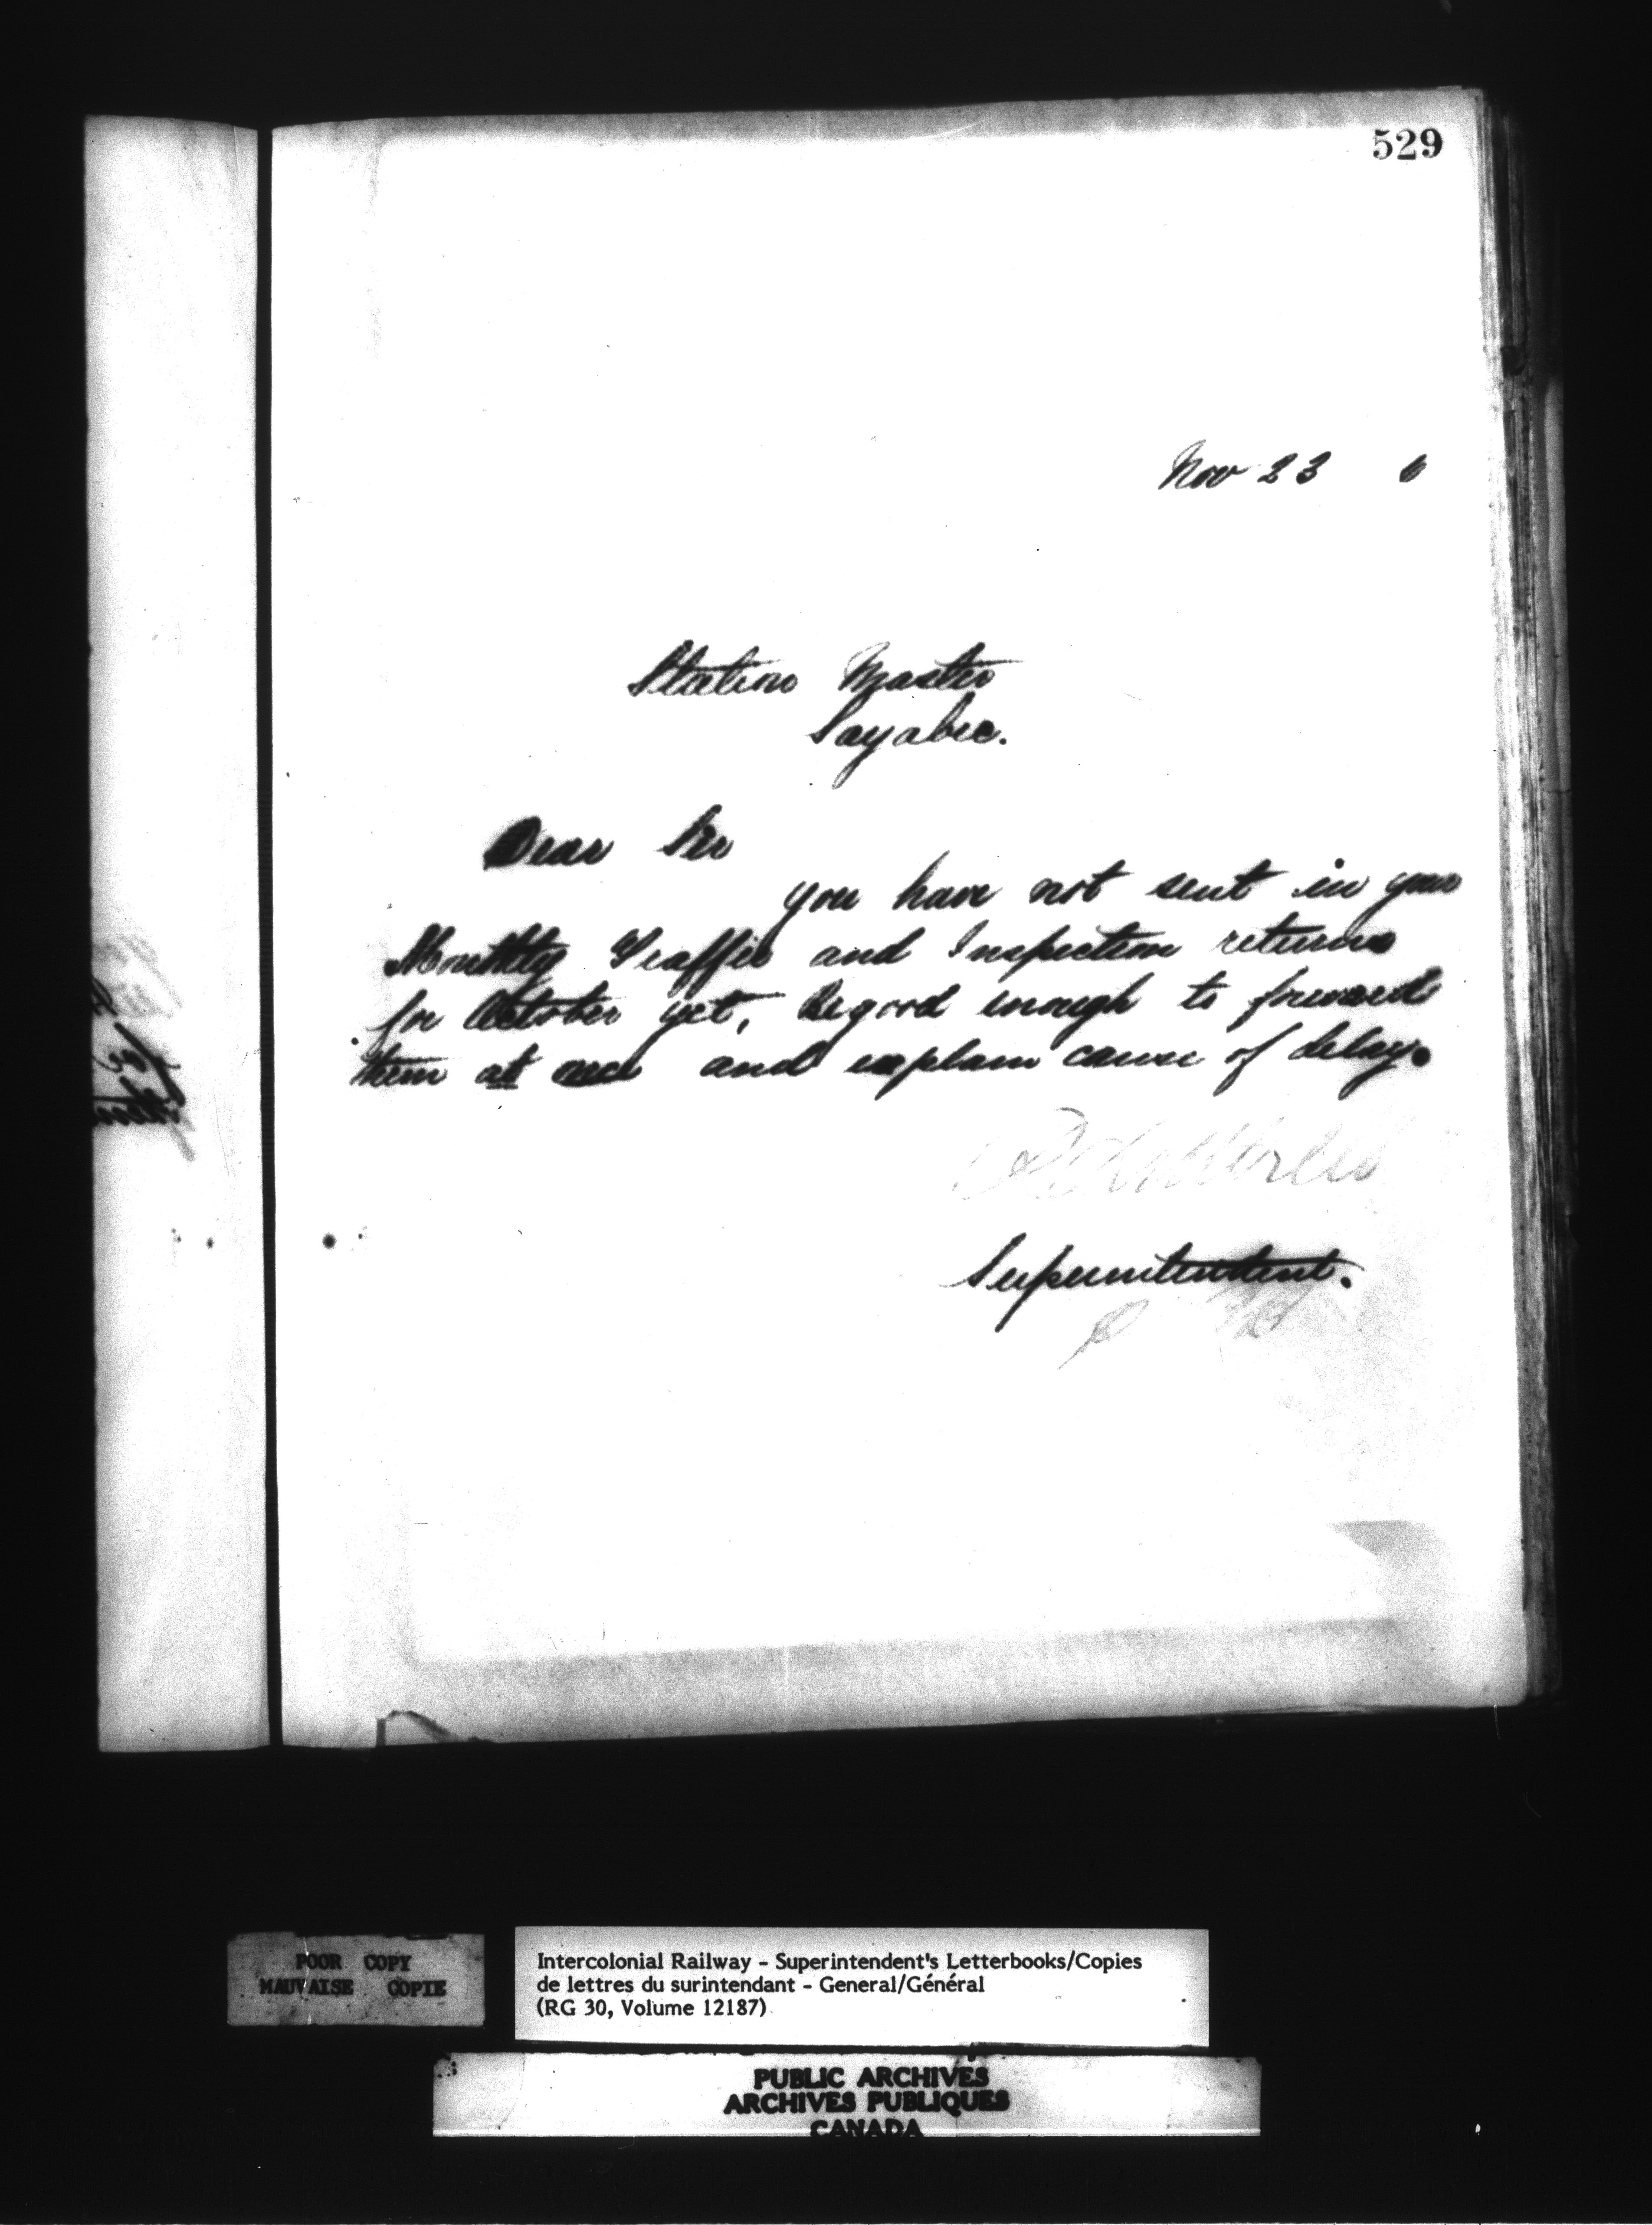 529
Nov 23 6
Station Master
Sayabec.
Dear Sir
you have not sent in your
Monthly Traffic and Inspection returns
for October yet, Be good enough to forward
them at once and explain cause of delay.
Superintendent.
POOR COPY
MAUVAISE COPIE
Intercolonial Railway - Superintendent's Letterbooks/Copies
de lettres du surintendant - General/Général
(RG 30, Volume 12187)
PUBLIC ARCHIVES
ARCHIVES PUBLIQUES
CANADA